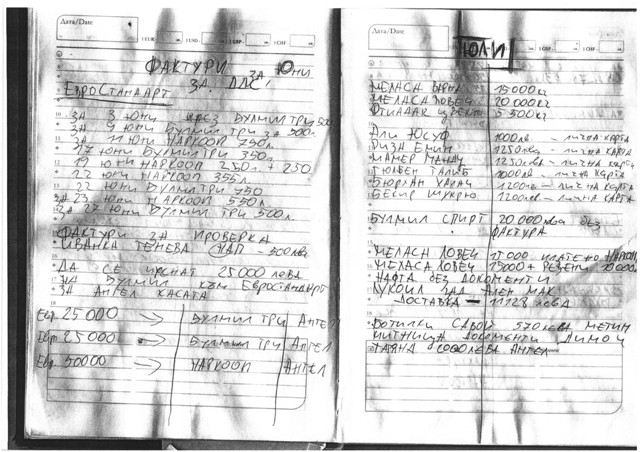 Дата/Date
ФАКТУРИ ЗА ЮНИ
ЗА ДДС
ЕВРОСТАНДАРТ
ЗА 3 ЮНИ БУЛМИЛ ТРИ 500
ЗА 9 ЮНИ БУЛМИЛ ТРИ ЗА 500л.
ЗА 11 ЮНИ НАРКООП 750л.
17 ЮНИ БУЛМИЛ ТРИ 350л.
19 ЮНИ НАРКООП 250л. + 250
22 ЮНИ НАРКООП 355л
22 ЮНИ БУЛМИЛ ТРИ 750
ЗА 23 ЮНИ НАРКООП 550л
ЗА 27 ЮНИ БУЛМИЛ ТРИ 500л.
ФАКТУРИ ЗА ПРОВЕРКА
ИВАНКА ТЕНЕВА НАП - 500лв
ДА СЕ 25000 ЛЕВА
БУЛМИЛ КЪМ ЕВРОСТАНДАРТ
ЗА АНГЕЛ КАСАТА
Евр 25000 → БУЛМИЛ ТРИ АНГЕЛ
Евр 25000 → БУЛМИЛ ТРИ АНГЕЛ
Евр 50000 → НАРКООП АНГЕЛ
Дата/Date
ЮЛИ
МЕЛАСА ВАРНА 15000кг
МЕЛАСА ЛОВЕЧ 20000кг
5500кг
АЛИ ЮСУФ 1000лв - ЛИЧНА КАРТА
ЕМИН 1250лв - ЛИЧНА КАРТА
1250лв - ЛИЧНА КАРТА
ГЮЛБЕН ТАЛИБ 1000лв - ЛИЧНА КАРТА
БЮРХАН 1200лв - ЛИЧНА КАРТА
БЕКИР ШУКРЮ 1200лв - ЛИЧНА КАРТА
БУЛМИЛ СПИРТ 20000лва без
ФАКТУРА
МЕЛАСА ЛОВЕЧ 15000 ПЛАТЕНО НАРКООП
МЕЛАСА ЛОВЕЧ 15000 + РЕЗЕНИ 10000
НАФТА БЕЗ ДОКОМЕНТИ
ЛУКОИЛ ЗАД АЛЕН МАК
ДОСТАВКА - 11128 лева
БОТИЛКИ САВОЙ 570лева МЕТИН
МИТНИЦА ДОКОМЕНТИ ДИМОЧ
5000лева АНГЕЛ